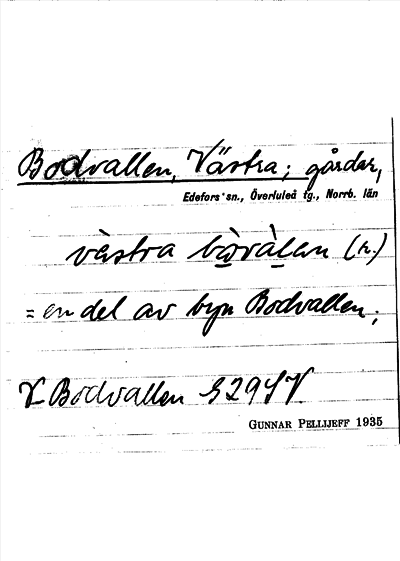 Bodvallen, Västra; gårdar,
Edefors sn., Överluleå tg., Norrb. län
västra bàvàlen (n.)
= en del av byn Bodvallen;
V Bodvallen
GUNNAR PELLIJEFF 1935